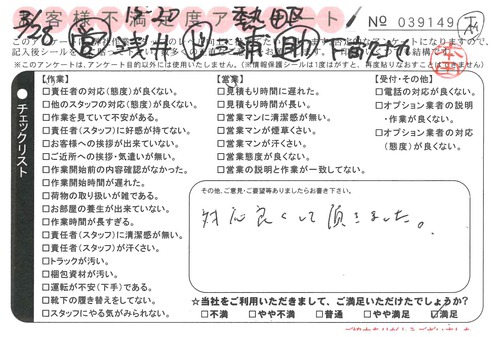 お客様不満足度アンケート
3/28
No 039149
※このアンケートは、アンケート目的以外には使用いたしません。(※情報保護シールは1度はがすと、再度貼りなおすことはできません)
チェックリスト
【作業】
□責任者の対応(態度)が良くない。
□他のスタッフの対応(態度)が良くない。
□作業を見ていて不安がある。
□責任者(スタッフ)に好感が持てない。
□お客様への挨拶が出来ていない。
□ご近所への挨拶・気遣いが無い。
□作業開始前の内容確認がなかった。
□作業開始時間が遅れた。
□荷物の取り扱いが雑である。
□お部屋の養生が出来ていない。
□作業時間が長すぎる。
□責任者(スタッフ)に清潔感が無い。
□責任者(スタッフ)が汗くさい。
□トラックが汚い。
□梱包資材が汚い。
□運転が不安(下手)である。
□靴下の履き替えをしてない。
□スタッフにやる気がみられない。
【営業】
□見積もり時間に遅れた。
□見積もり時間が長い。
□営業マンに清潔感が無い。
□営業マンが煙草くさい。
□営業マンが汗くさい。
□営業態度が良くない。
□営業の説明と作業が一致してない。
【受付・その他】
□電話の対応が良くない。
□オプション業者の説明・作業が良くない。
□オプション業者の対応(態度)が良くない。
その他、ご意見・ご要望等ありましたらお書き下さい。
対応良くして頂きました。
☆当社をご利用いただきまして、ご満足いただけたでしょうか?
□不満 □やや不満 □普通 □やや満足 ☑満足